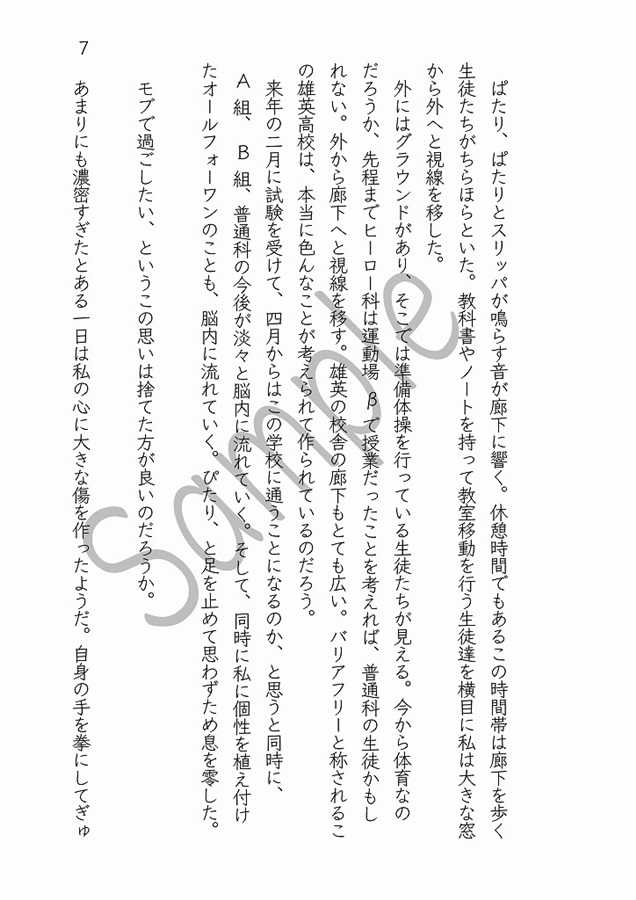 7
ぱたり、ぱたりとスリッパが鳴らす音が廊下に響く。休憩時間でもあるこの時間帯は廊下を歩く
生徒たちがちらほらといた。教科書やノートを持って教室移動を行う生徒達を横目に私は大きな窓
から外へと視線を移した。
外にはグラウンドがあり、そこでは準備体操を行っている生徒たちが見える。今から体育なの
だろうか、先程までヒーロー科は運動場βで授業だったことを考えれば、普通科の生徒かもし
れない。外から廊下へと視線を移す。雄英の校舎の廊下もとても広い。バリアフリーと称されるこ
の雄英高校は、本当に色んなことが考えられて作られているのだろう。
来年の二月に試験を受けて、四月からはこの学校に通うことになるのか、と思うと同時に、
A組、B組、普通科の今後が淡々と脳内に流れていく。そして、同時に私に個性を植え付け
たオールフォーワンのことも、脳内に流れていく。ぴたり、と足を止めて思わずため息を零した。
モブで過ごしたい、というこの思いは捨てた方が良いのだろうか。
あまりにも濃密すぎたとある一日は私の心に大きな傷を作ったようだ。自身の手を拳にしてぎゅ
Sample